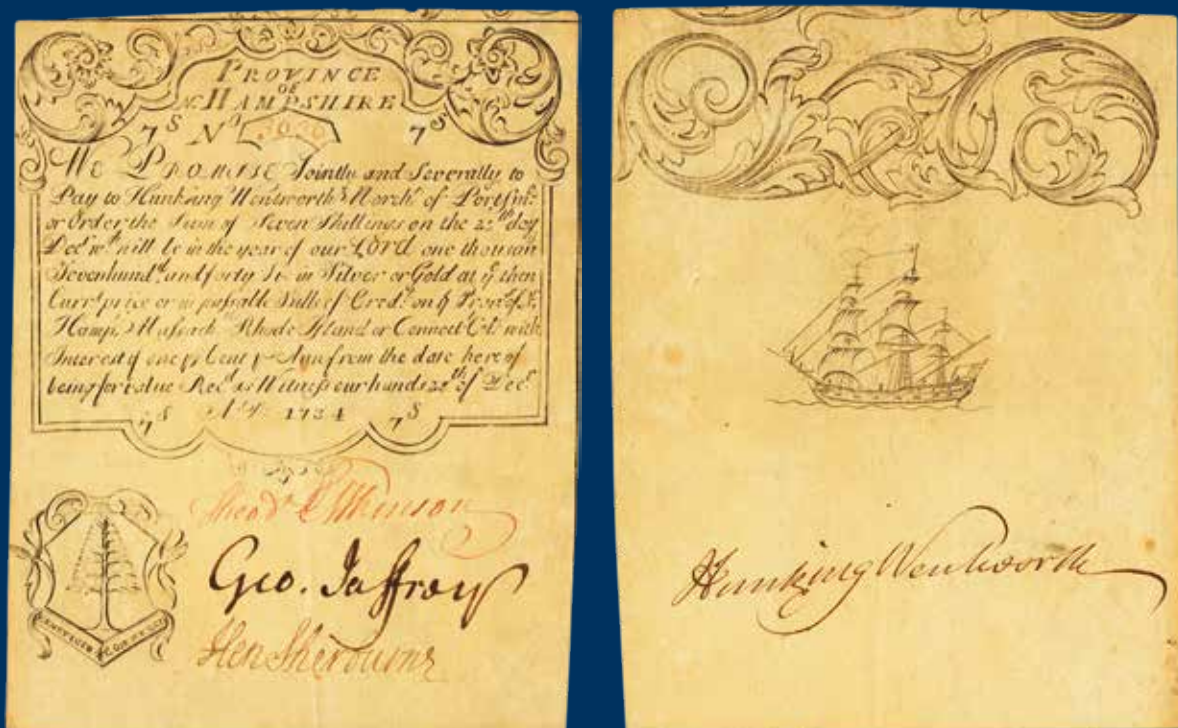 PROVINCE
OF
N. HAMPSHIRE
7s No 3020 7s
We PROMISE Jointly and Severally to
Pay to Hunking Wentworth March.t of Portsm.o
or Order the Sum of Seven Shillings on the 25th day
Dec.r wch will be in the year of our LORD one thousan
Sevenhund.d and forty in Silver or Gold at ye then
Curr.t price or in passable Bills of Cred.t on ye Prov.s of N.
Hamp. Massach. Rhode Island or Connect. Col. with
Interest of one p Cent p Ann from the date hereof
being for value Rec.d as Witness our hands 25th of Dec.r
7s 1734 7s
Theod.r Atkinson
Geo. Jaffrey
Hen Sherburne
Hunking Wentworth